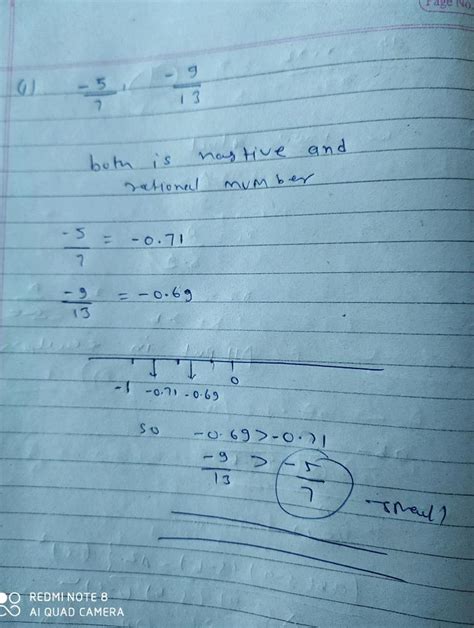 Page No.
-5/7, -9/13
both is nagtive and
rational number
-5/7 = -0.71
-9/13 = -0.69
-1 -0.71 -0.69 0
so -0.69 > -0.71
-9/13 > -5/7
REDMI NOTE 8
AI QUAD CAMERA